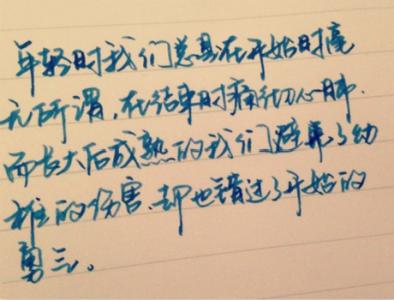 年轻时我们总是在开始时毫
无所谓，在结束时痛彻心肺.
而长大后成熟的我们避免了幼
稚的伤害.却也错过了开始的
勇气。